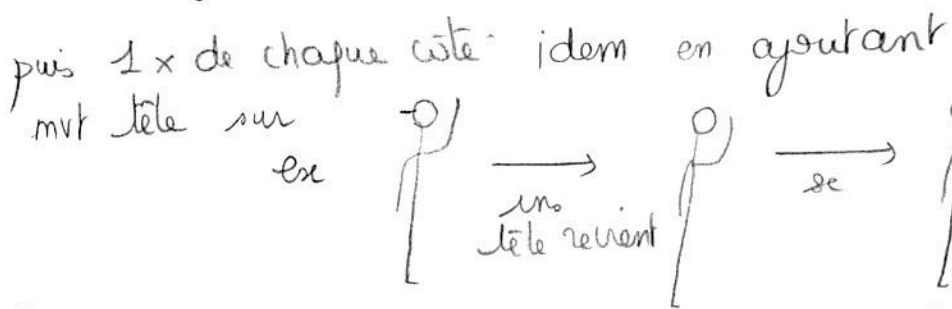 puis 1x de chaque côté idem en ajoutant
mvt tête sur
ex
ins
tête revient
se